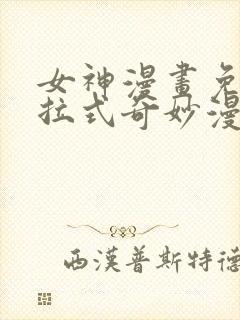 女神漫畫免
拉式奇妙漫
西漢普斯特德